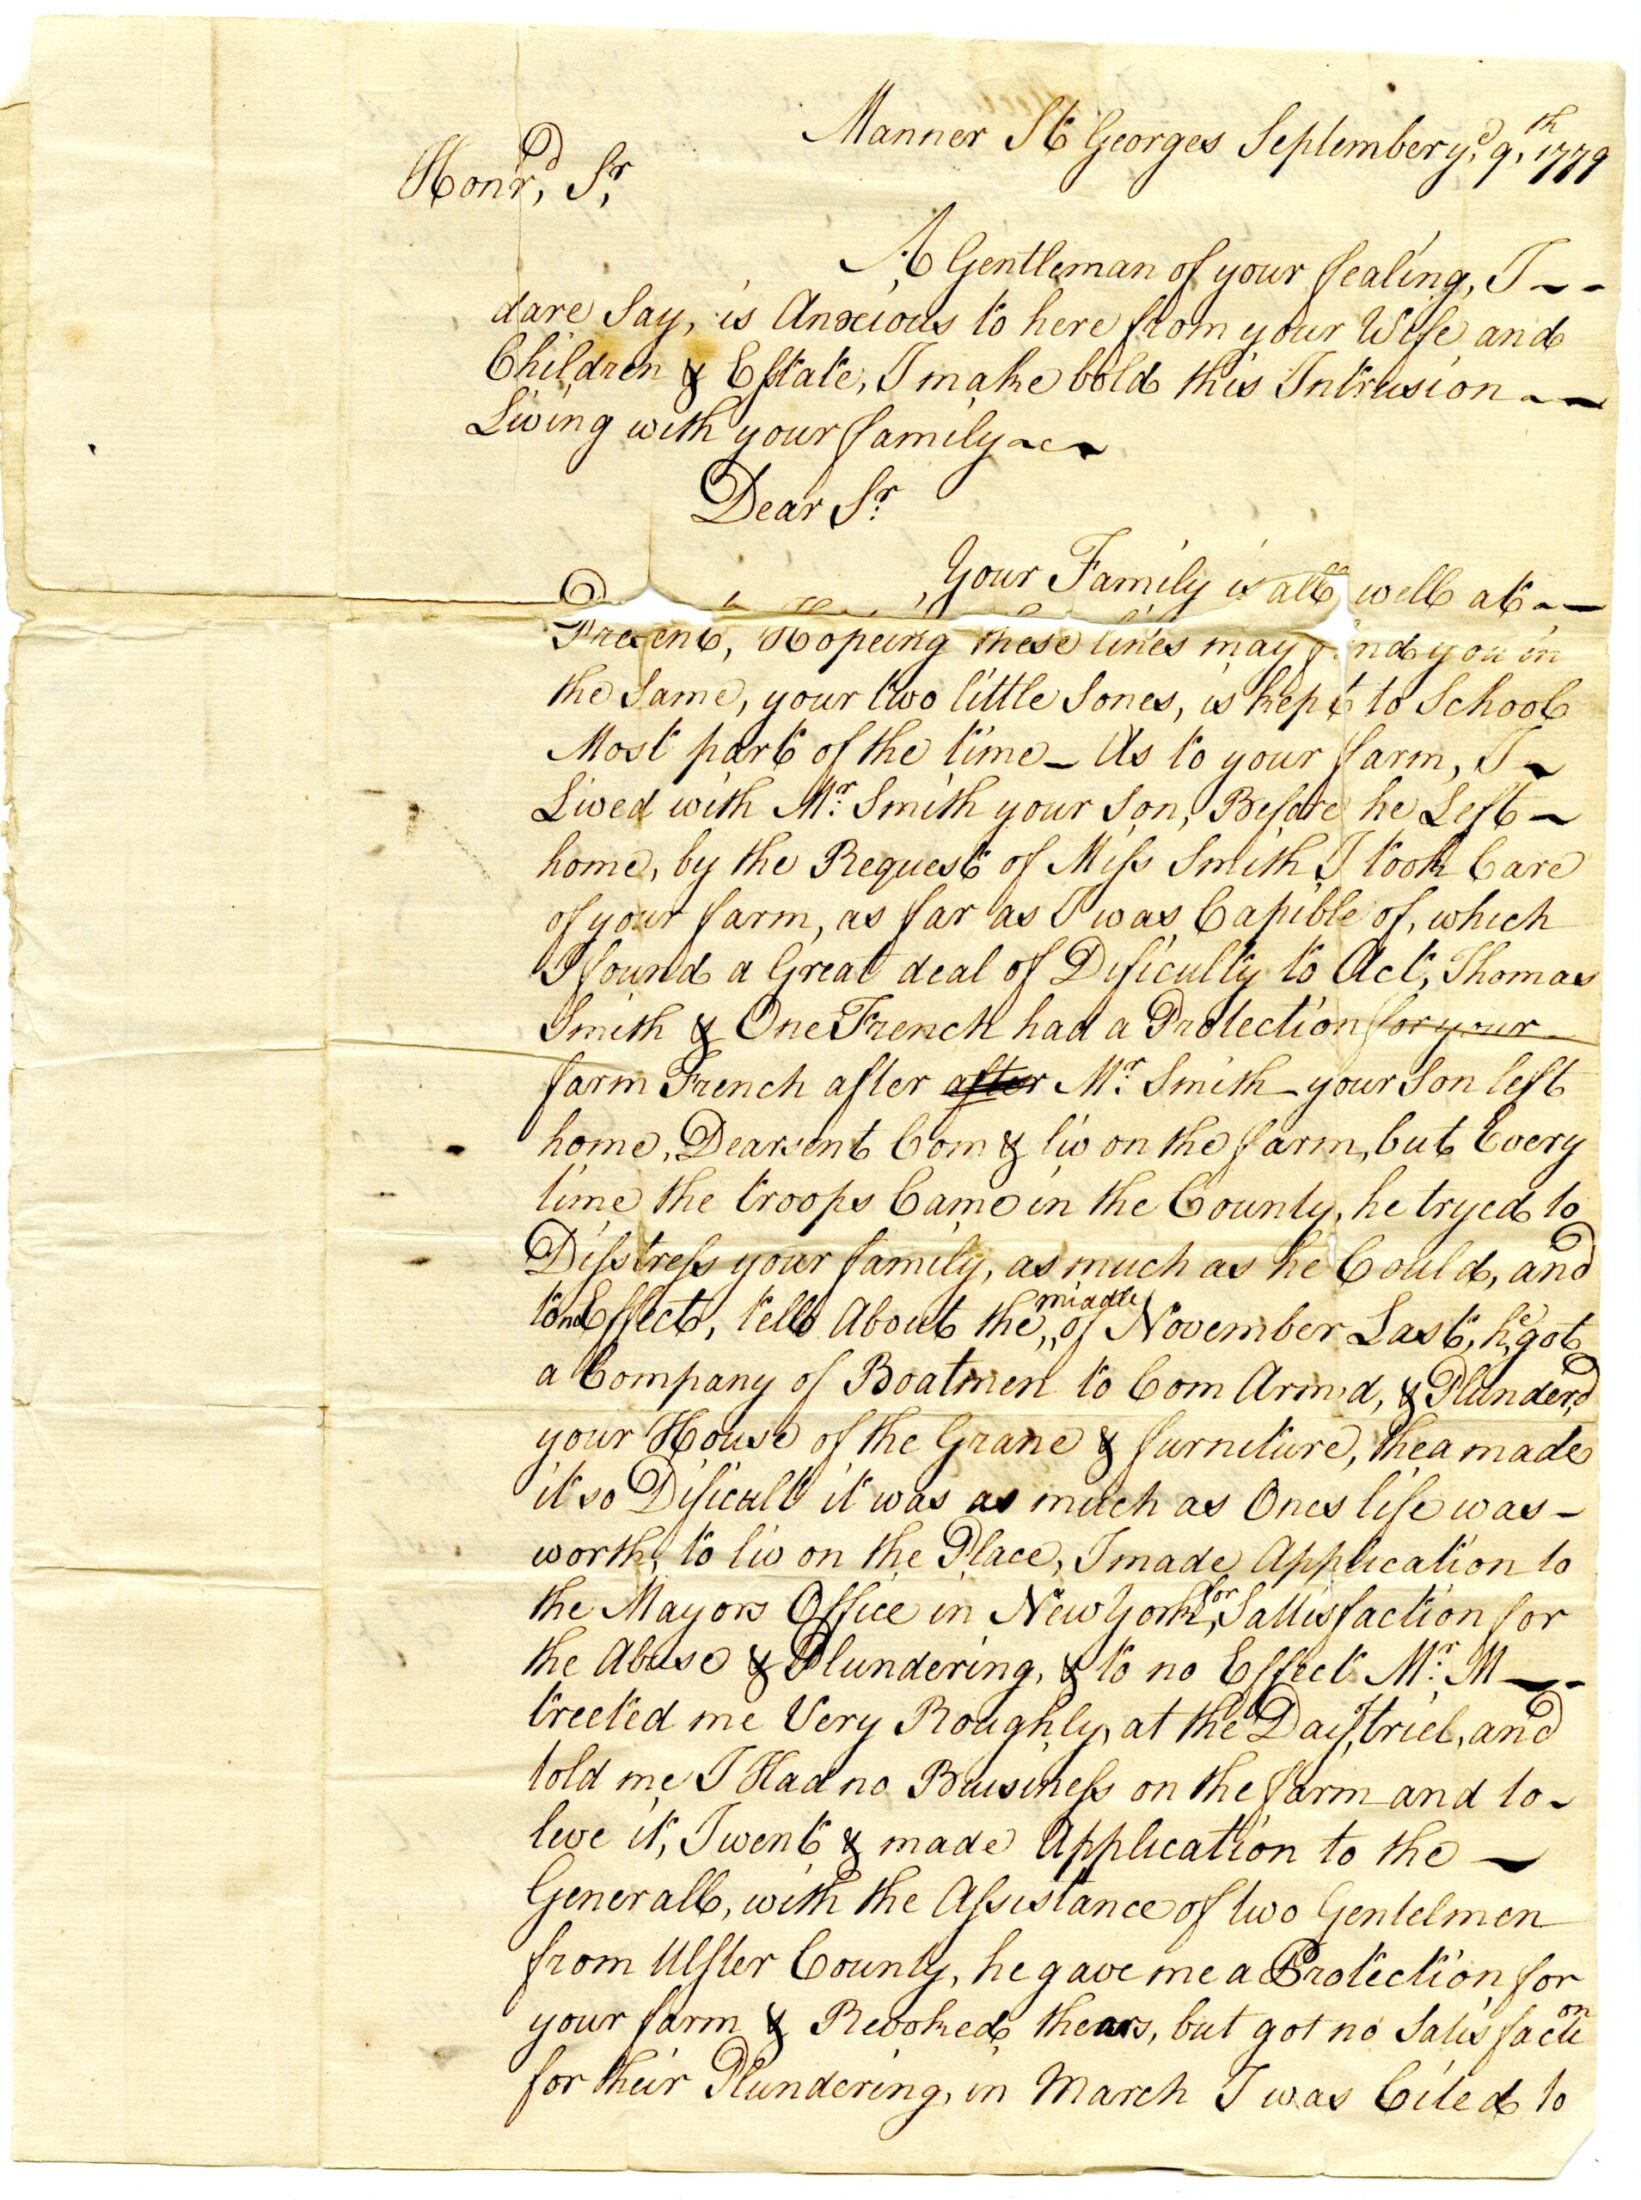 Manner St Georges September ye, 9,th 1779
Honrd, Sr,
A Gentleman of your fealing, I
dare Say, is Anxious to here from your Wife and
Children & Estate, I make bold this Intrusion
Living with your family
Dear Sr
Your Family is all well at
Present, Hopeing these lines may find you in
the Same, your two little Sones, is kept to School
Most part of the time - As to your farm, I
Lived with Mr. Smith your Son, Before he Left
home, by the Request of Miss Smith, I took Care
of your farm, as far as I was Capible of, which
I found a Great deal of Dificulty to Act, Thomas
Smith & One French had a Protection for your
farm French after after Mr. Smith your Son left
home, Dearsent Com & liv on the farm, but Every
time the troops Came in the County, he tryed to
Disstress your family, as much as he Could, and
to no Effect, tell About the middle of November Last, he got
a Company of Boatmen to Com Arm,d, & Plunder,d
your House of the Grane & furniture, thea made
it so Dificult it was as much as Ones life was
worth, to liv on the Place, I made Application to
the Mayors Office in New York, for Sattisfaction for
the Abuse & Plundering, & to no Effect Mr. M
treeted me Very Roughly, at the Day of triel, and
told me I Had no Buisiness on the farm and to
leve it, I went & made Application to the
Generall, with the Assistance of two Gentelmen
from Ulster County, he gave me a Protection for
your farm & Revoked thears, but got no Satisfaction
for their Plundering, in March I was Cited to